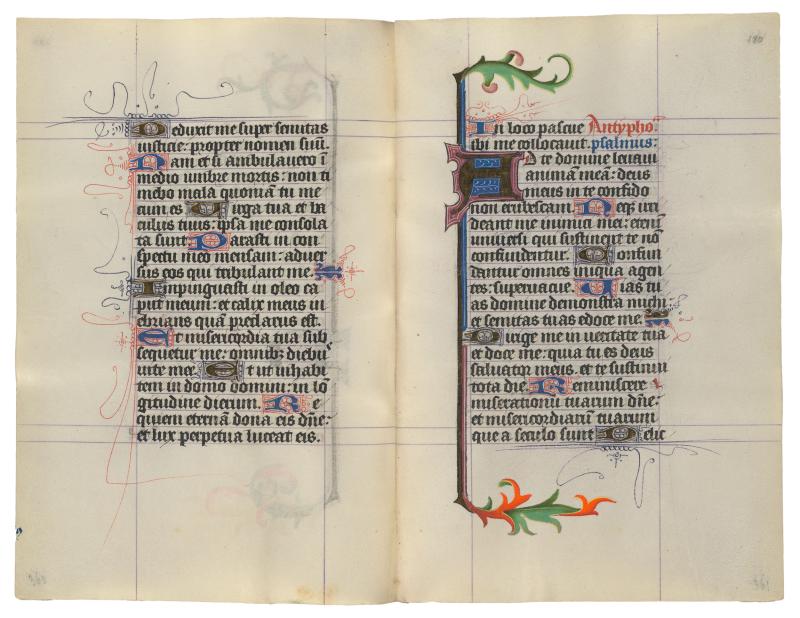 Deduxit me super semitas
iusticie: propter nomen suū.
Nam et si ambulavero ī
medio umbre mortis: non ti
mebo mala quoniā tu me
cum es. Virga tua et ba
culus tuus: ipsa me consola
ta sunt. Parasti in con
spectu meo mensam: adver
sus eos qui tribulant me.
Inpinguasti in oleo ca
put meum: et calix meus in
ebrians quā preclarus est.
Et misericordia tua sub
sequetur me: omnibꝫ diebꝰ
vite mee. Et ut inhabi
tem in domo domini: in lō
gitudine dierum. Re
quiem eternā dona eis dn̄e:
et lux perpetua luceat eis.
180
In loco pascue Antypho.
ibi me collocavit. psalmus:
Ad te domine levavi
animam meā: deus
meus in te confido
non erubescam. Neqꝫ irri
deant me inimici mei: etenī
universi qui sustinent te nō
confundentur. Confun
dantur omnes iniqua agen
tes: supervacue. Vias tu
as domine demonstra michi:
et semitas tuas edoce me.
Dirige me in veritate tua
et doce me: quia tu es deus
salvator meus. et te sustinui
tota die. Reminiscere
miserationū tuarum dn̄e:
et misericordiarū tuarum
que a seculo sunt. Delic
361